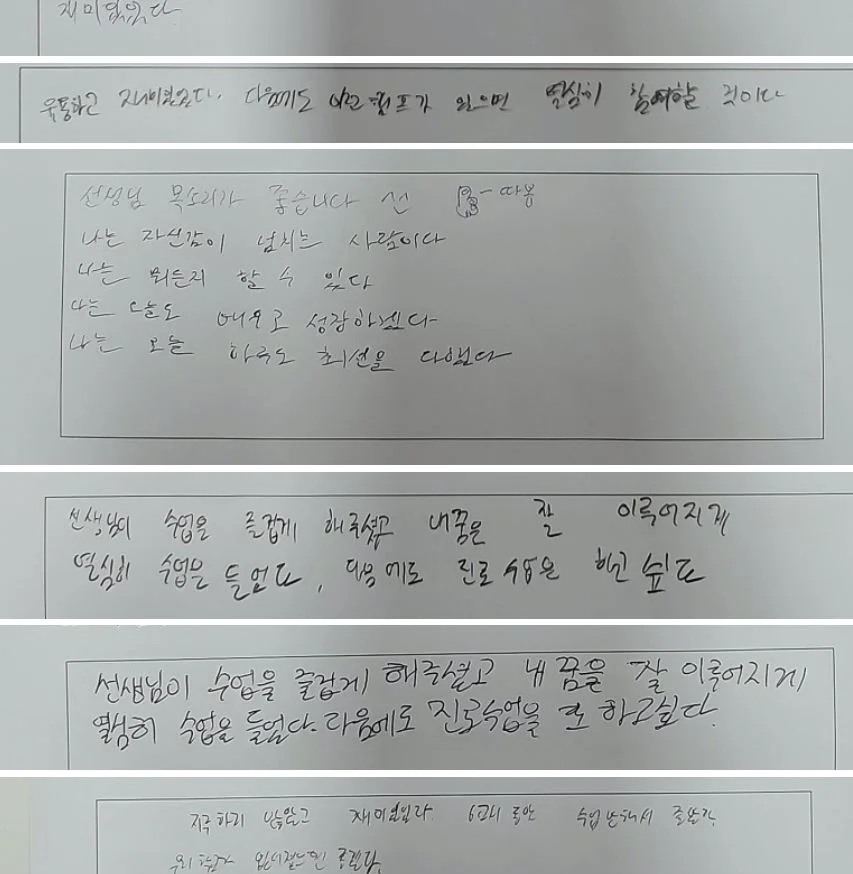 재미있었다
유통하고 재미있었다. 다음에도 이런 캠프가 있으면 열심히 참여할 것이다
선생님 목소리가 좋습니다 선 따봉
나는 자신감이 넘치는 사람이다
나는 뭐든지 할 수 있다
나는 오늘도 성장하겠다
나는 오늘 하루도 최선을 다했다
선생님이 수업을 즐겁게 해주셨고 내꿈은 잘 이루어지게
열심히 수업은 들었다, 다음에도 진로수업은 하고 싶다
선생님이 수업을 즐겁게 해주셨고 내 꿈을 잘 이루어지게
열심히 수업을 들었다. 다음에도 진로수업을 또 하고싶다.
않았고 재미있었다. 6교시 동안 수업
좋겠다.